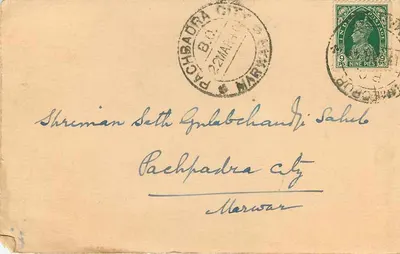 PACHBADRA CITY
MARWAR
B.O.
22 MAR
INDIA POSTAGE
NINE PIES
Shriman Seth Gulabchandji Saheb
Pachpadra City
Marwar